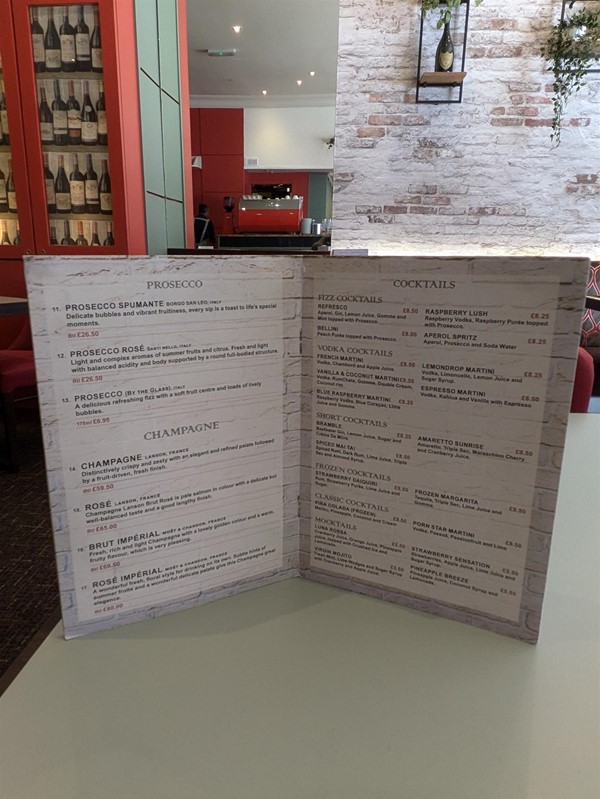 PROSECCO
11. PROSECCO SPUMANTE BORGO SAN LEO, ITALY
Delicate bubbles and vibrant fruitiness, every sip is a toast to life's special
moments.
Btl £26.50
12. PROSECCO ROSÉ ITALY
Light and complex aromas of summer fruits and citrus. Fresh and light
with balanced acidity and body supported by a round full-bodied structure.
Btl £26.50
13. PROSECCO (BY THE GLASS), ITALY
A delicious refreshing fizz with a soft fruit centre and loads of lively
bubbles.
£6.95
CHAMPAGNE
14. CHAMPAGNE LANSON, FRANCE
Distinctively crispy and zesty with an elegant and refined palate followed
by a fruit-driven, fresh finish.
Btl £59.50
15. ROSÉ LANSON, FRANCE
Champagne Lanson Brut Rosé is pale salmon in colour with a delicate but
well-balanced taste and a good lengthy finish.
Btl £61.00
16. BRUT IMPÉRIAL MOËT & CHANDON, FRANCE
Fresh, rich and light Champagne with a lovely golden colour and a warm,
fruity flavour, which is very pleasing.
17. ROSÉ IMPÉRIAL MOËT & CHANDON, FRANCE
A wonderful fresh, floral style for drinking on its own. Subtle hints of
summer fruits and a wonderful delicate palate give this Champagne great
elegance.
COCKTAILS
FIZZ COCKTAILS
REFRESCO £8.50
Aperol, Gin, Lemon Juice, Gomme and
Mint topped with Prosecco.
BELLINI
Peach Purée topped with Prosecco.
RASPBERRY LUSH £8.25
Raspberry Vodka, Raspberry Purée topped
with Prosecco.
APEROL SPRITZ £8.25
Aperol, Prosecco and Soda Water
VODKA COCKTAILS
FRENCH MARTINI
Vodka, Chambord and Apple Juice.
VANILLA & COCONUT MARTINI
Vodka, Gomme, Double Cream,
Coconut
BLUE RASPBERRY MARTINI
Raspberry Vodka, Blue Curaçao, Lime
Juice and Gomme.
LEMONDROP MARTINI
Vodka, Limoncello, Lemon Juice and
Sugar Syrup.
ESPRESSO MARTINI
Vodka, Kahlua and Vanilla with Espresso
SHORT COCKTAILS
BRAMBLE
Gin, Lemon Juice, Sugar and
Crème De Mûre.
SPICED MAI TAI
Spiced Rum, Dark Rum, Lime Juice, Triple
Sec and Almond Syrup.
AMARETTO SUNRISE
Amaretto, Triple Sec, Maraschino Cherry
and Cranberry Juice.
FROZEN COCKTAILS
STRAWBERRY DAIQUIRI
Rum, Strawberry Purée, Lime Juice and
Sugar.
FROZEN MARGARITA
Tequila, Triple Sec, Lime Juice and
CLASSIC COCKTAILS
PIÑA COLADA (FROZEN)
Malibu, Pineapple, Coconut and Cream
PORN STAR MARTINI
Vodka, Passoã, Passionfruit and Lime
MOCKTAILS
LUNA ROSSA
Cranberry Juice, Orange Juice, Pineapple
Juice, topped with Crushed Ice and
VIRGIN MOJITO
Fresh Mint, Lime Wedges and Sugar Syrup
with Cranberry and Apple Juice.
STRAWBERRY SENSATION
Strawberries, Apple Juice, Lime Juice and
PINEAPPLE BREEZE
Pineapple Juice, Coconut Syrup and
Lemonade.